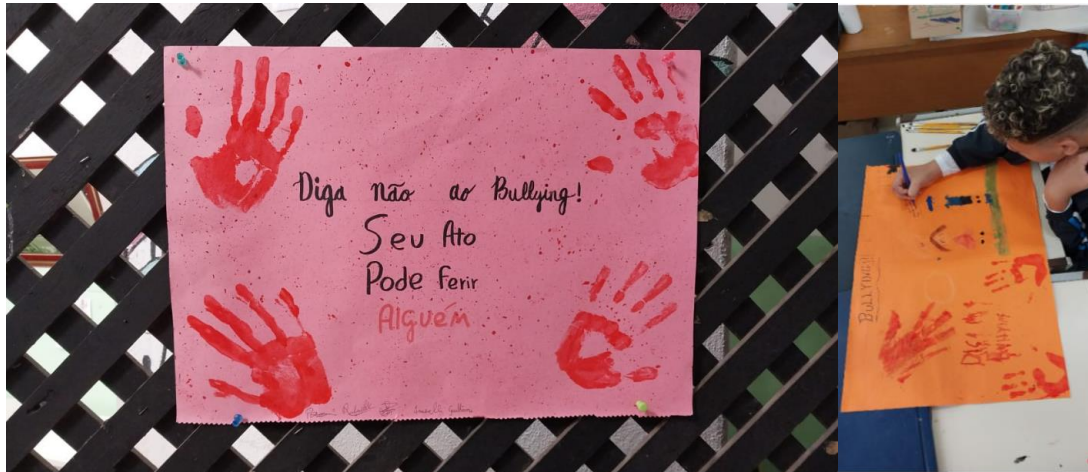 Diga não ao Bullying!
Seu Ato
Pode Ferir
Alguém
BULLYING!!!